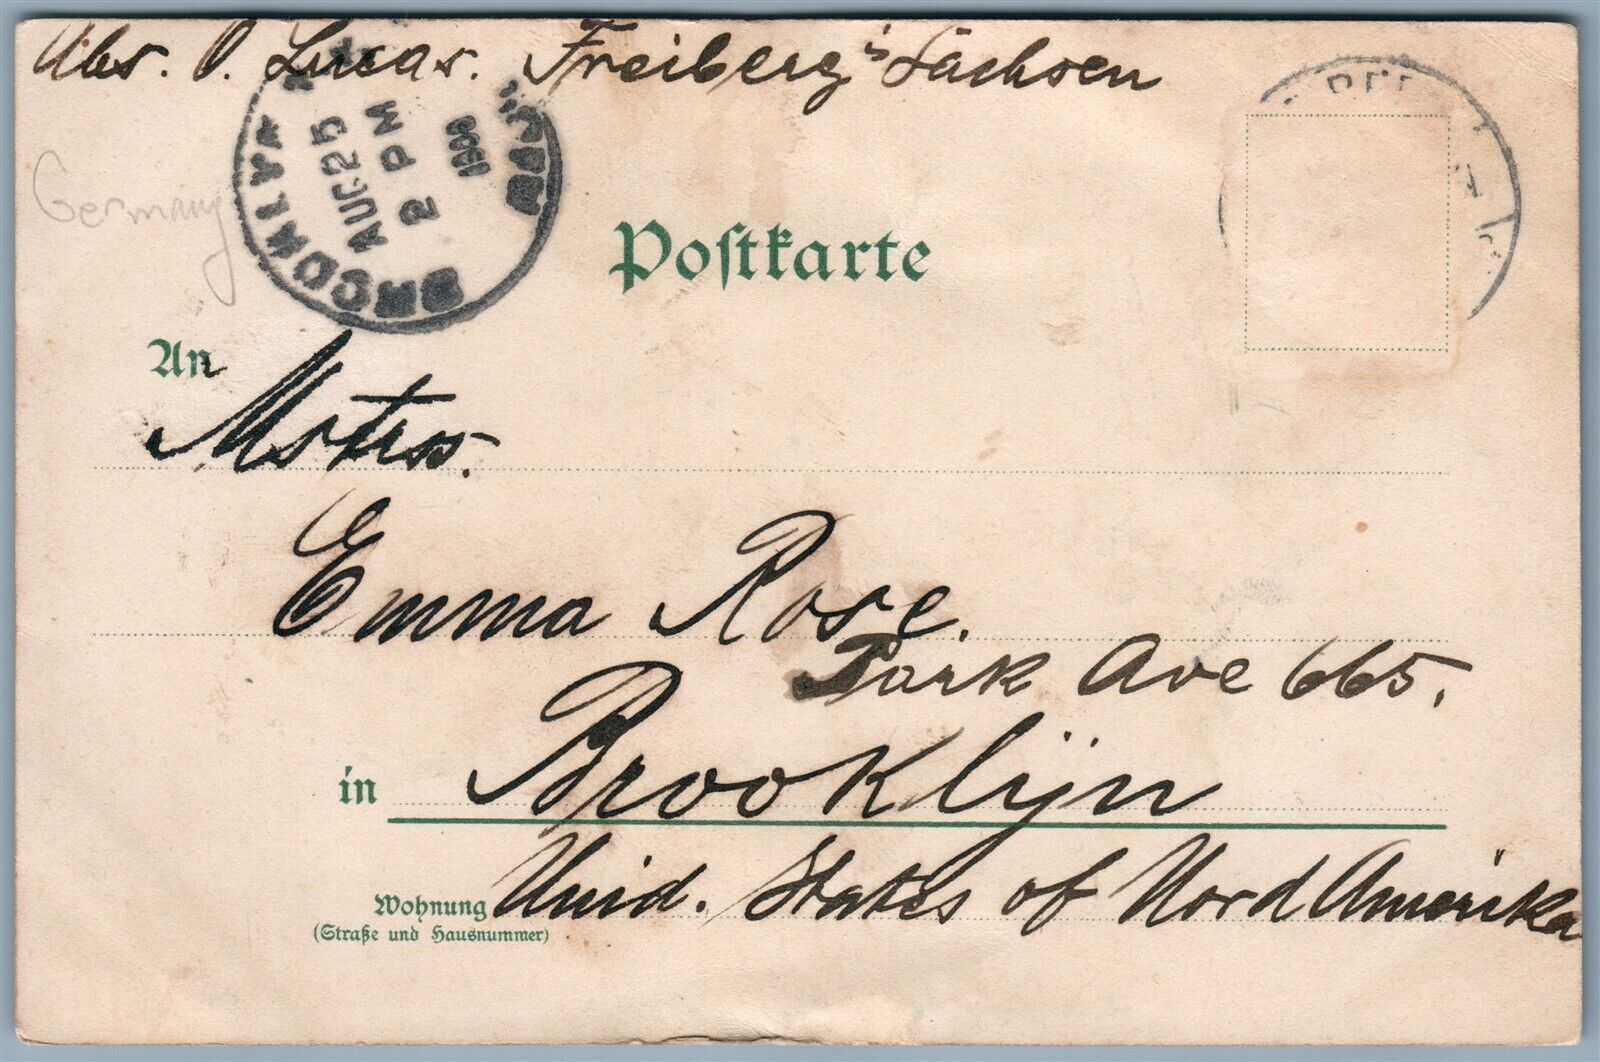 Abs. O. Lucas. Freiberg i Sachsen
BROOKLYN
AUG 25
2 PM
Germany
Postkarte
An
Mstrss.
Emma Rose.
Park Ave 665.
in Brooklijn
Wohnung Unid. States of Nord Amerika
(Straße und Hausnummer)